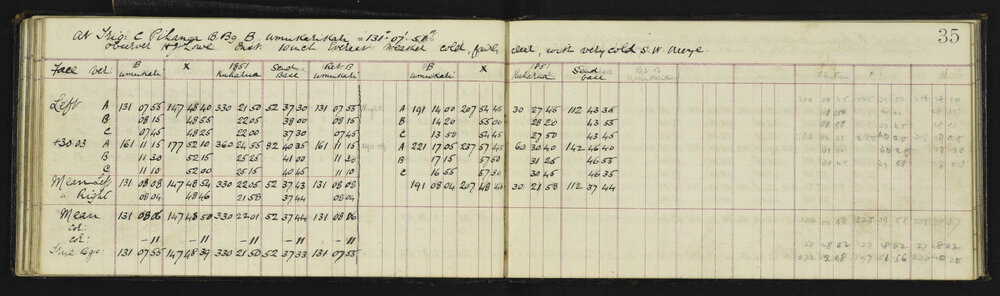 35
At Trig: C Pihanga B.Bg B. Umukarikari = 131° 07' 58"
observer H J Lowe Inst. 10 inch Everest Weather cold, fair, clear, with very cold S.W. breeze.
Face Ver: B Umukari X 1851 Kuharua Send Base Ret B Umukari B Umukari X 1851 Kuharua Send Base Ret B Umukarikari
Left A 131 07 55 147 48 40 330 21 50 52 37 30 131 07 55 Right A 191 14 00 207 54 45 30 27 45 112 43 35
B 08 15 48 55 22 05 38 00 08 15 B 14 20 55 00 28 20 43 55
C 07 45 48 25 22 00 37 30 07 45 C 13 50 54 45 27 50 43 45
+30.03 A 161 11 15 177 52 10 360 24 55 82 40 35 161 11 15 A 221 17 05 237 57 45 60 30 40 142 46 40
B 11 30 52 15 25 25 41 00 11 30 B 17 15 57 50 31 25 46 55
C 11 10 52 00 25 15 40 45 11 10 C 16 55 57 30 30 45 46 35
Mean Left 131 08 08 147 48 54 330 22 05 52 37 43 131 08 08 191 08 04 207 48 46 30 21 58 112 37 44
" Right 08 04 48 46 21 58 37 44 08 04
Mean 131 08 06 147 48 50 330 22 01 52 37 44 131 08 06
col:
col: - 11 - 11 - 11 - 11 - 11
True Bgs 131 07 55 147 48 39 330 21 50 52 37 33 131 07 55